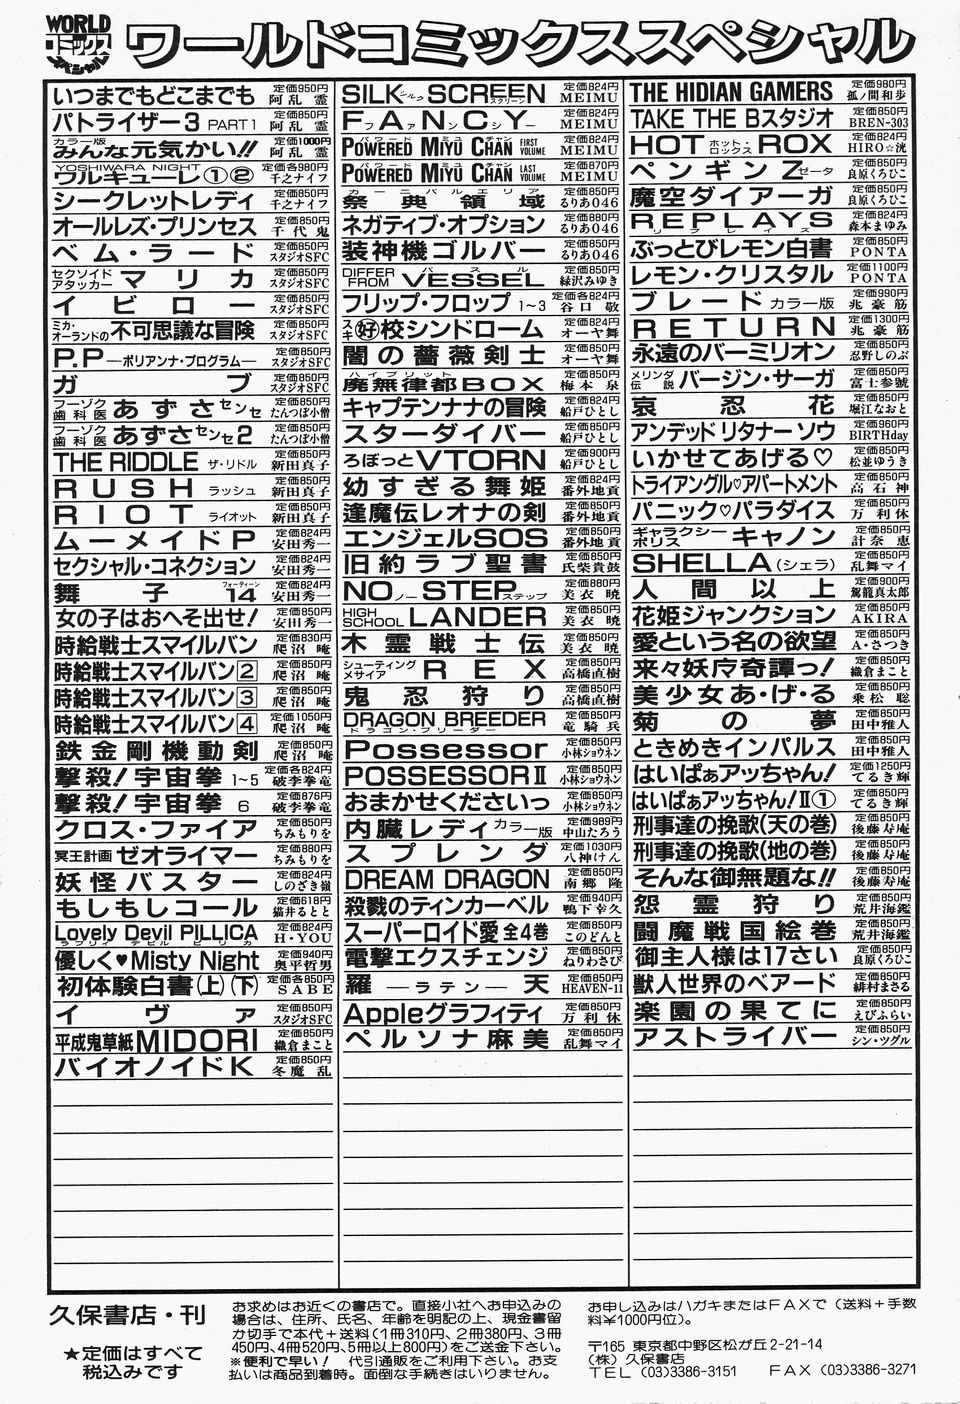 WORLD コミックス スペシャル ワールドコミックススペシャル
いつまでもどこまでも 定価950円 阿乱霊
パトライザー3 PART1 定価850円 阿乱霊
カラー版 みんな元気かい!! 定価1000円 阿乱霊
YOSHIWARA NIGHT ワルキューレ①② 定価各980円 千之ナイフ
シークレットレディ 定価850円 千之ナイフ
オールレズ・プリンセス 定価850円 千代鬼
ベム・ラード 定価850円 スタジオSFC
セクソイドアタッカー マリカ 定価850円 スタジオSFC
イビロー 定価850円 スタジオSFC
ミカ・オーランドの不可思議な冒険 定価850円 スタジオSFC
P.P―ポリアンナ・プログラム― 定価850円 スタジオSFC
ガブ 定価850円 スタジオSFC
フーゾク歯科医 あずさセンセ 定価850円 たんつぼ小僧
フーゾク歯科医 あずさセンセ2 定価850円 たんつぼ小僧
THE RIDDLE ザ・リドル 定価850円 新田真子
RUSH ラッシュ 定価850円 新田真子
RIOT ライオット 定価850円 新田真子
ムーメイドP 定価824円 安田秀一
セクシャル・コネクション 定価824円 安田秀一
舞子14 フォーティーン 定価824円 安田秀一
女の子はおへそ出せ! 定価850円 安田秀一
時給戦士スマイルバン 定価830円 爬沼唵
時給戦士スマイルバン2 定価850円 爬沼唵
時給戦士スマイルバン3 定価850円 爬沼唵
時給戦士スマイルバン4 定価1050円 爬沼唵
鉄金剛機動剣 定価850円 爬沼唵
撃殺!宇宙拳 1~5 定価各824円 破李拳竜
撃殺!宇宙拳 6 定価876円 破李拳竜
クロス・ファイア 定価850円 ちみもりを
冥王計画ゼオライマー 定価880円 ちみもりを
妖怪バスター 定価824円 しのざき嶺
もしもしコール 定価618円 猫井るとと
Lovely Devil PILLICA ラブリィ デビル ピリカ 定価824円 H・YOU
優しく♥Misty Night 定価940円 奥平哲男
初体験白書(上)(下) 定価各850円 SABE
イヴァ 定価850円 スタジオSFC
平成鬼草紙MIDORI 定価850円 織倉まこと
バイオノイドK 定価850円 冬魔乱
SILK シルク SCREEN スクリーン 定価824円 MEIMU
FANCY ファンシー 定価824円 MEIMU
POWERED MIYU CHAN パワード ミュ チャン FIRST VOLUME 定価824円 MEIMU
POWERED MIYU CHAN パワード ミュ チャン LAST VOLUME 定価870円 MEIMU
祭典領域 カーニバルエリア 定価850円 るりあ046
ネガティブ・オプション 定価850円 るりあ046
装神機ゴルバー 定価880円 るりあ046
DIFFER FROM VESSEL バスル 定価850円 緑沢みゆき
フリップ・フロップ 1~3 定価各824円 谷口敬
スキ 好校シンドローム 定価824円 オーヤ舞
闇の薔薇剣士 定価850円 オーヤ舞
廃無律都BOX ハイブリット 定価850円 梅本泉
キャプテンナナの冒険 定価824円 船戸ひとし
スターダイバー 定価850円 船戸ひとし
ろぼっとVTORN 定価900円 船戸ひとし
幼すぎる舞姫 定価824円 番外地貢
逢魔伝レオナの剣 定価850円 番外地貢
エンジェルSOS 定価850円 番外地貢
旧約ラブ聖書 定価850円 氏柴貴鼓
NO ノー STEP ステップ 定価880円 美衣暁
HIGH SCHOOL LANDER 定価850円 美衣暁
木霊戦士伝 定価850円 美衣暁
シューティングメサイア REX 定価850円 高橋直樹
鬼忍狩り 定価850円 高橋直樹
DRAGON BREEDER ドラゴン・ブリーダー 定価850円 竜騎兵
Possessor 定価850円 小林ショウネン
POSSESSORⅡ 定価850円 小林ショウネン
おまかせくださいっ 定価850円 小林ショウネン
内臓レディ カラー版 定価989円 中山たろう
スプレンダ 定価1030円 八神けん
DREAM DRAGON 定価850円 南郷隆
殺戮のティンカーベル 定価940円 鴨下幸久
スーパーロイド愛 全4巻 定価850円 このどんと
電撃エクスチェンジ 定価850円 ねりわさび
羅―ラテン―天 定価850円 HEAVEN-11
Appleグラフィティ 定価850円 万利休
ペルソナ麻美 定価850円 乱舞マイ
THE HIDIAN GAMERS 定価980円 孤ノ間和歩
TAKE THE Bスタジオ 定価850円 BREN-303
HOT ROX ホットロックス 定価824円 HIRO☆洸
ペンギンZ ゼータ 定価850円 良原くろひこ
魔空ダイアーガ 定価850円 良原くろひこ
REPLAYS リプレイズ 定価824円 森本まゆみ
ぶっとびレモン白書 定価850円 PONTA
レモン・クリスタル 定価1100円 PONTA
ブレード カラー版 定価990円 兆豪筋
RETURN 定価1300円 兆豪筋
永遠のバーミリオン 定価850円 忍野しのぶ
メリンダ伝説 バージン・サーガ 定価850円 富士参號
哀忍花 定価850円 堀江なおと
アンデッドリタナーソウ 定価960円 BIRTHday
いかせてあげる♡ 定価850円 松並ゆうき
トライアングル♡アパートメント 定価850円 高石神
パニック♡パラダイス 定価850円 万利休
ギャラクシーポリス キャノン 定価850円 計奈恵
SHELLA(シェラ) 定価850円 乱舞マイ
人間以上 定価900円 駕籠真太郎
花姫ジャンクション 定価850円 AKIRA
愛という名の欲望 定価850円 A・さつき
来々妖庤奇譚っ! 定価850円 織倉まこと
美少女あ・げ・る 定価850円 乗松聡
菊の夢 定価850円 田中雅人
ときめきインパルス 定価850円 田中雅人
はいぱぁアッちゃん! 定価1250円 てるき輝
はいぱぁアッちゃん!Ⅱ① 定価850円 てるき輝
刑事達の挽歌(天の巻) 定価850円 後藤寿庵
刑事達の挽歌(地の巻) 定価850円 後藤寿庵
そんな御無題な!! 定価850円 後藤寿庵
怨霊狩り 定価850円 荒井海鑑
闘魔戦国絵巻 定価850円 荒井海鑑
御主人様は17さい 定価850円 良原くろひこ
獣人世界のベアード 定価850円 緋村まさる
楽園の果てに 定価850円 えびふらい
アストライバー 定価850円 シン・ツグル
久保書店・刊
★定価はすべて
税込みです
お求めはお近くの書店で。直接小社へお申込みの
場合は、住所、氏名、年齢を明記の上、現金書留
か切手で本代+送料(1冊310円、2冊380円、3冊
450円、4冊520円、5冊以上800円)をご送金下さい。
※便利で早い! 代引通販をご利用下さい。お支
払いは商品到着時。面倒な手続きはいりません。
お申し込みはハガキまたはFAXで(送料+手数
料¥1000円位)。
〒165 東京都中野区松が丘2-21-14
(株)久保書店
TEL (03)3386-3151 FAX (03)3386-3271